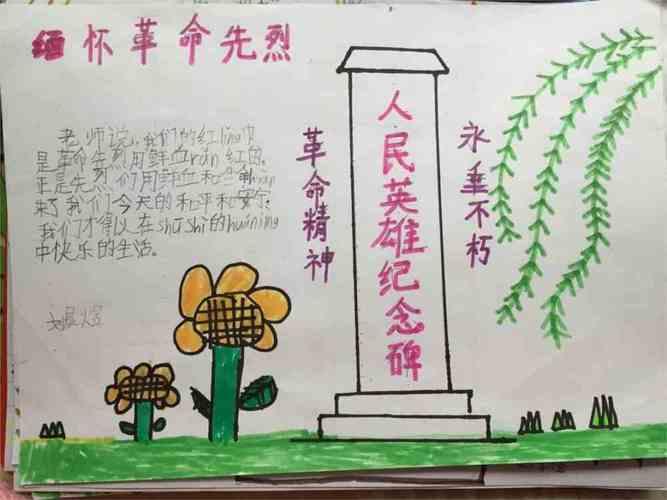 缅怀革命先烈
老师说,我们的红lǐng巾
是革命先烈用鲜血rǎn红的。
正是先烈们用鲜血和生命huàn
来了我们今天的和平和安宁。
我们才得以在shū shì的huánjìng
中快乐的生活。
革命精神
人民英雄纪念碑
永垂不朽